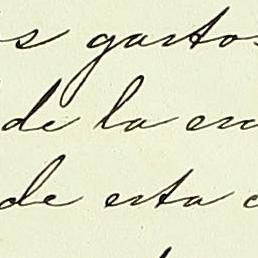 s gastos
de la en
de esta c